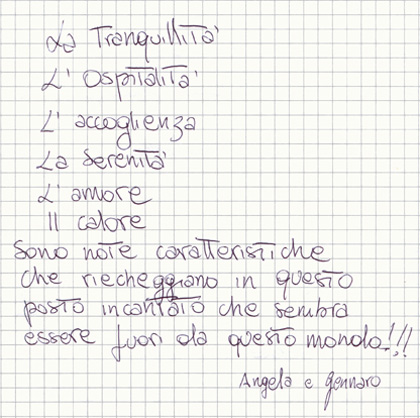 La Tranquillità
L' Ospitalità
L' accoglienza
La Serenità
L' amore
Il calore
sono note caratteristiche
che riecheggiano in questo
posto incantato che sembra
essere fuori da questo mondo!!!
Angela e Gennaro